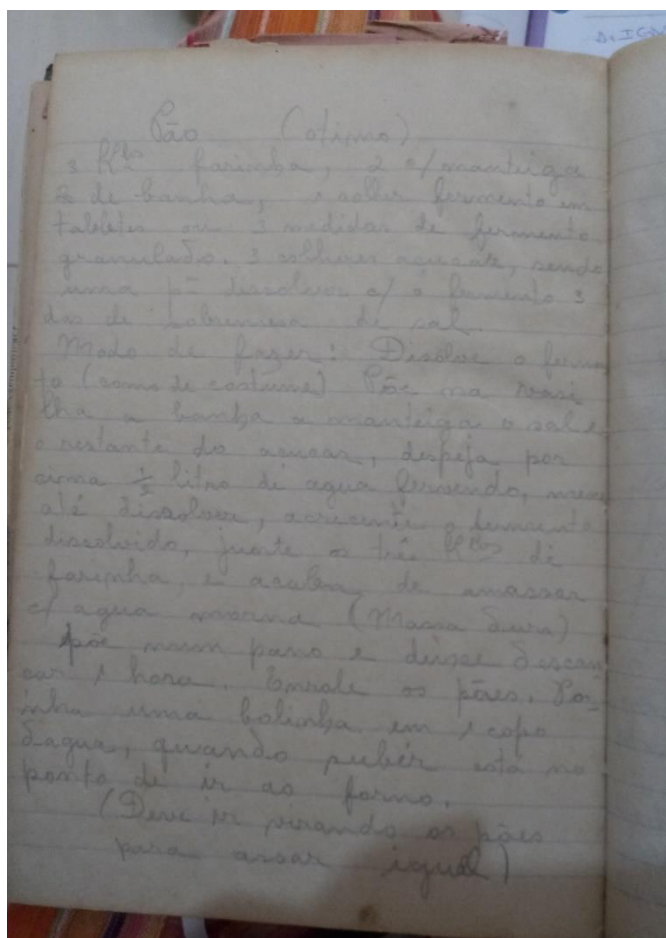 Pão (otimo)
3 Kilos farinha, 2 c/ manteiga
de banha, 1 colher fermento em
tabletes ou 3 medidas de fermento
granulado. 3 colheres açucar, sendo
uma p= dissolver c/ o fermento 3
das de sobremesa de sal.
Modo de fazer: Disolve o fermen
to (como de costume) Põe na vasi
lha a banha a manteiga o sal e
o restante do açucar, despeja por
cima 1/2 litro de agua fervendo, mexe
até dissolver, acrescente o fermento
dissolvido, junte os três Kilos de
farinha, e acaba, de amassar
c/ agua morna (Massa dura)
põe num pano e deixe descan
sar 1 hora. Enrole os pães. Po=
nha uma bolinha em 1 copo
dagua, quando subir está no
ponto de ir ao forno.
(Deve ir virando os pães
para assar igual)